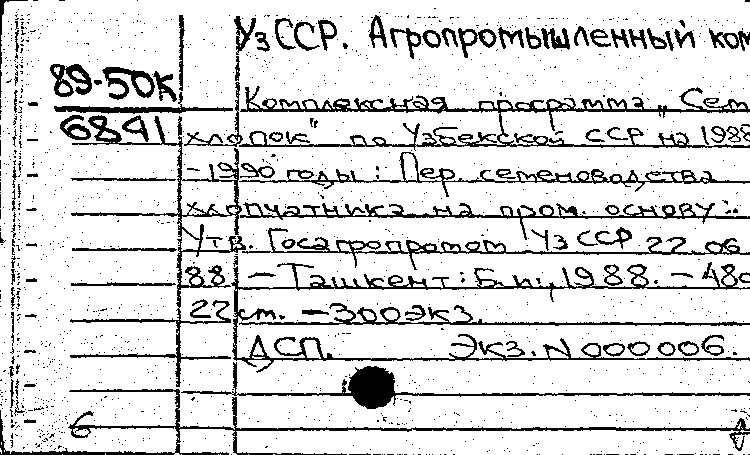 УзССР. Агропромышленный ком
89-50К
6841
Комплексная программа „Сем
хлопок" по Узбекской ССР на 1988
-1990 годы: Пер. семеноводства
хлопчатника на пром. основу:
Утв. Госагропромом УзССР 22.06
88. - Ташкент: Б.и., 1988. - 48с
22 см. - 300экз.
ДСП. Экз. N 000006.
6